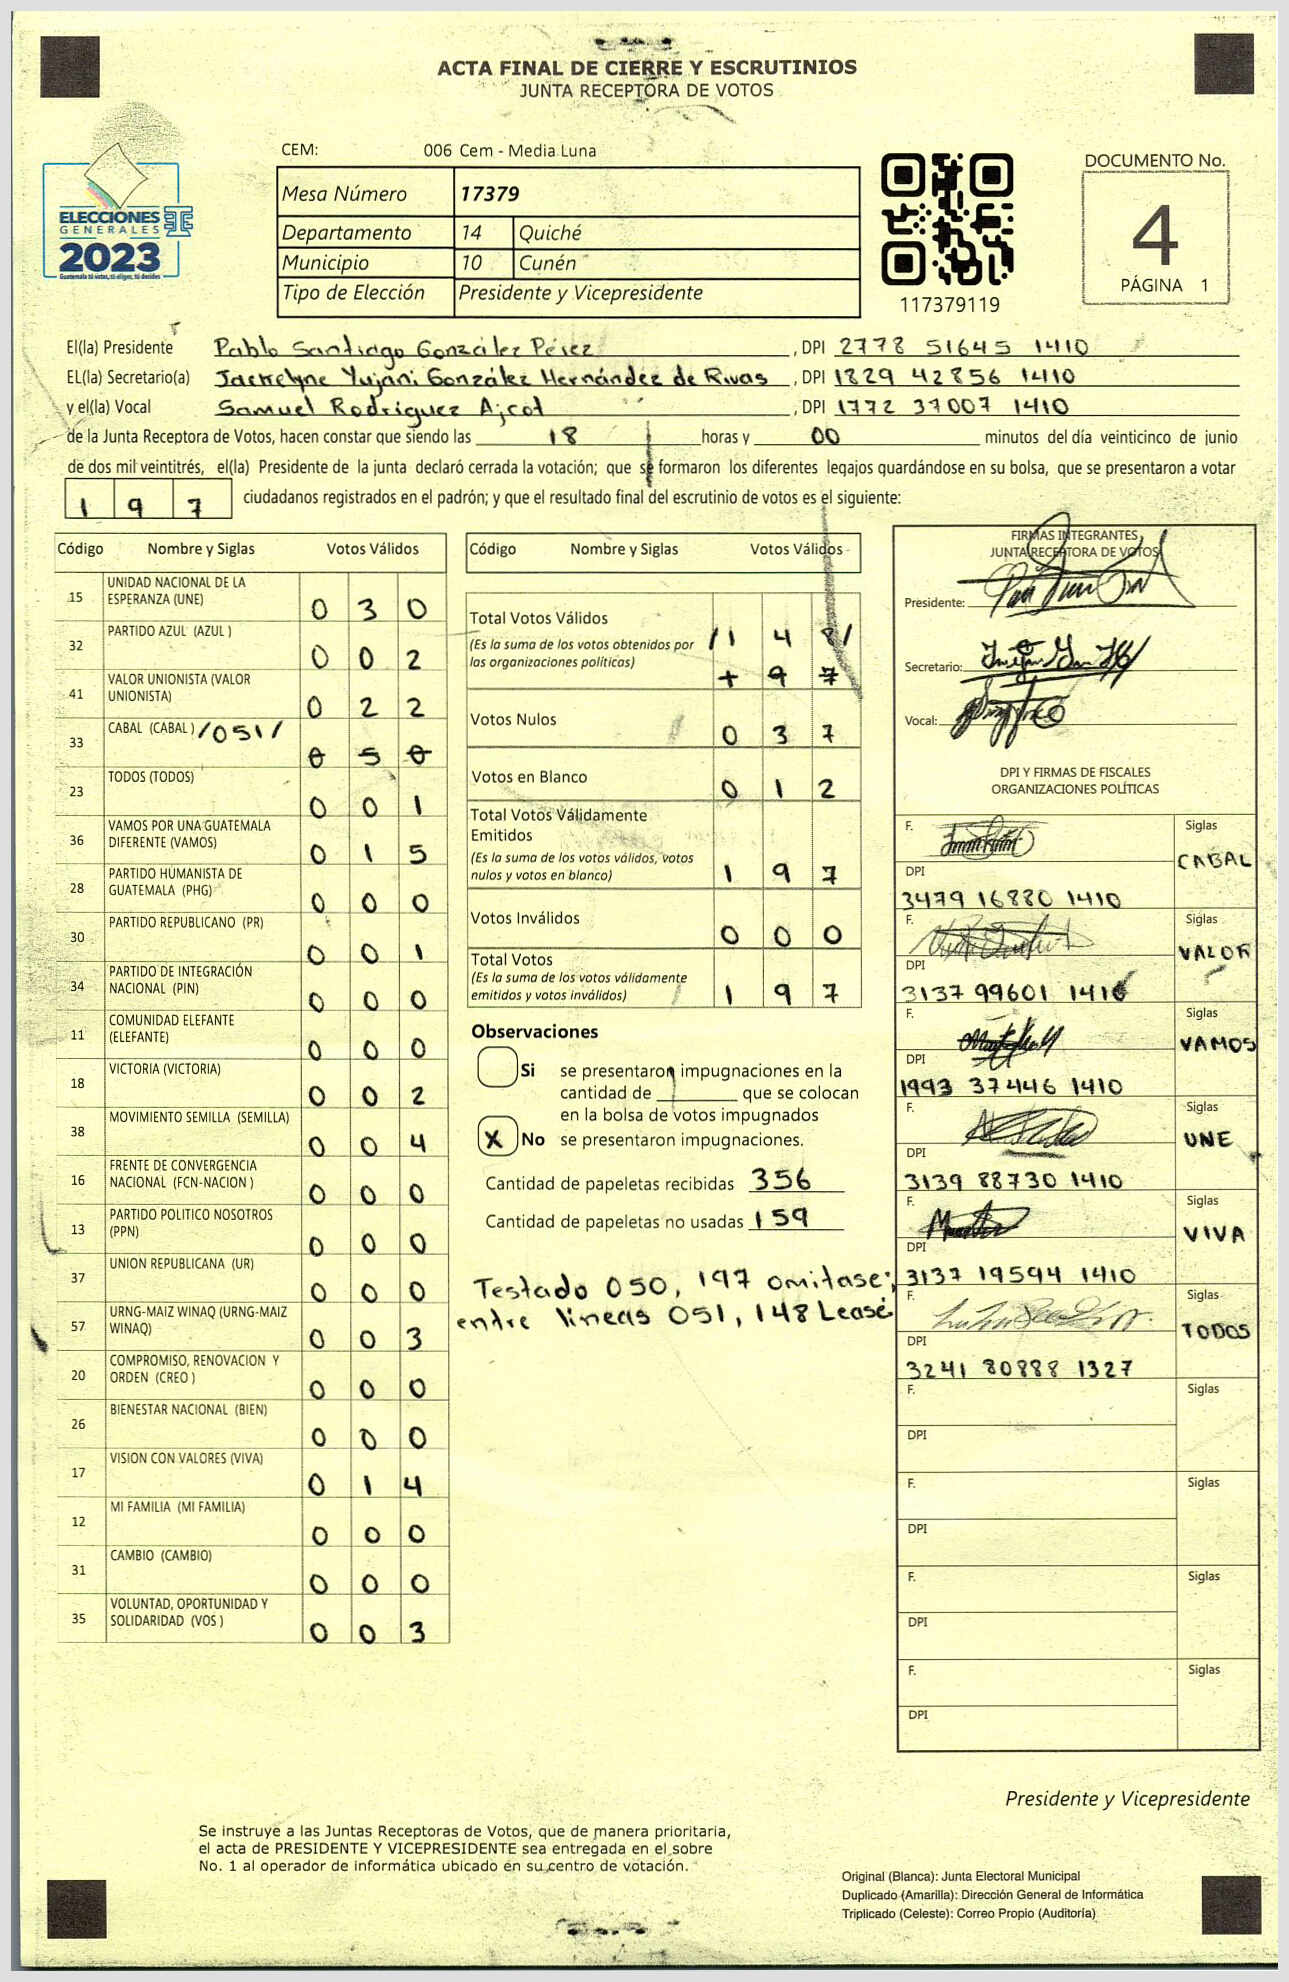 ACTA FINAL DE CIERRE Y ESCRUTINIOS
JUNTA RECEPTORA DE VOTOS
CEM: 006 Cem - Media Luna
Mesa Número 17379
Departamento 14 Quiché
Municipio 10 Cunén
Tipo de Elección Presidente y Vicepresidente
ELECCIONES
GENERALES
2023
Guatemala tú votas, tú eliges, tú decides
117379119
DOCUMENTO No.
4
PÁGINA 1
El(la) Presidente Pablo Santiago González Pérez, DPI 2778 51645 1410
EL(la) Secretario(a) Jackelyne Yujani González Hernández de Rivas, DPI 1829 42856 1410
y el(la) Vocal Samuel Rodríguez Ajcot, DPI 1772 37007 1410
de la Junta Receptora de Votos, hacen constar que siendo las 18 horas y 00 minutos del día veinticinco de junio
de dos mil veintitrés, el(la) Presidente de la junta declaró cerrada la votación; que se formaron los diferentes legajos guardándose en su bolsa, que se presentaron a votar
197 ciudadanos registrados en el padrón; y que el resultado final del escrutinio de votos es el siguiente:
Código Nombre y Siglas Votos Válidos
15 UNIDAD NACIONAL DE LA
ESPERANZA (UNE) 0 3 0
32 PARTIDO AZUL (AZUL ) 0 0 2
41 VALOR UNIONISTA (VALOR
UNIONISTA) 0 2 2
33 CABAL (CABAL ) /051/ 0 5 0
23 TODOS (TODOS) 0 0 1
36 VAMOS POR UNA GUATEMALA
DIFERENTE (VAMOS) 0 1 5
28 PARTIDO HUMANISTA DE
GUATEMALA (PHG) 0 0 0
30 PARTIDO REPUBLICANO (PR) 0 0 1
34 PARTIDO DE INTEGRACIÓN
NACIONAL (PIN) 0 0 0
11 COMUNIDAD ELEFANTE
(ELEFANTE) 0 0 0
18 VICTORIA (VICTORIA) 0 0 2
38 MOVIMIENTO SEMILLA (SEMILLA) 0 0 4
16 FRENTE DE CONVERGENCIA
NACIONAL (FCN-NACION ) 0 0 0
13 PARTIDO POLITICO NOSOTROS
(PPN) 0 0 0
37 UNION REPUBLICANA (UR) 0 0 0
57 URNG-MAIZ WINAQ (URNG-MAIZ
WINAQ) 0 0 3
20 COMPROMISO, RENOVACION Y
ORDEN (CREO ) 0 0 0
26 BIENESTAR NACIONAL (BIEN) 0 0 0
17 VISION CON VALORES (VIVA) 0 1 4
12 MI FAMILIA (MI FAMILIA) 0 0 0
31 CAMBIO (CAMBIO) 0 0 0
35 VOLUNTAD, OPORTUNIDAD Y
SOLIDARIDAD (VOS ) 0 0 3
Código Nombre y Siglas Votos Válidos
Total Votos Válidos /1 4 8/
(Es la suma de los votos obtenidos por
las organizaciones políticas) 1 9 7
Votos Nulos 0 3 7
Votos en Blanco 0 1 2
Total Votos Válidamente
Emitidos
(Es la suma de los votos válidos, votos
nulos y votos en blanco) 1 9 7
Votos Inválidos 0 0 0
Total Votos
(Es la suma de los votos válidamente
emitidos y votos inválidos) 1 9 7
Observaciones
Si se presentaron impugnaciones en la
cantidad de ________ que se colocan
en la bolsa de votos impugnados
X No se presentaron impugnaciones.
Cantidad de papeletas recibidas 356
Cantidad de papeletas no usadas 159
Testado 050, 197 omitase;
entre lineas 051, 148 Leasé
FIRMAS INTEGRANTES
JUNTA RECEPTORA DE VOTOS
Presidente:
Secretario:
Vocal:
DPI Y FIRMAS DE FISCALES
ORGANIZACIONES POLÍTICAS
F. Siglas
CABAL
DPI
3479 16880 1410
F. Siglas
VALOR
DPI
3137 99601 1410
F. Siglas
VAMOS
DPI
1993 37446 1410
F. Siglas
UNE
DPI
3139 88730 1410
F. Siglas
VIVA
DPI
3137 19594 1410
F. Siglas
TODOS
DPI
3241 80888 1327
F. Siglas
DPI
F. Siglas
DPI
F. Siglas
DPI
F. Siglas
DPI
Presidente y Vicepresidente
Se instruye a las Juntas Receptoras de Votos, que de manera prioritaria,
el acta de PRESIDENTE Y VICEPRESIDENTE sea entregada en el sobre
No. 1 al operador de informática ubicado en su centro de votación.
Original (Blanca): Junta Electoral Municipal
Duplicado (Amarilla): Dirección General de Informática
Triplicado (Celeste): Correo Propio (Auditoría)